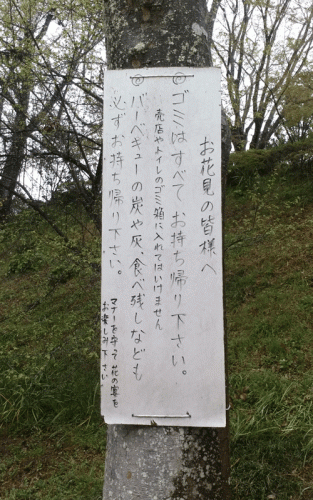 お花見の皆様へ
◎ゴミはすべてお持ち帰り下さい。
売店やトイレのゴミ箱に入れてはいけません
◎バーベキューの炭や灰、食べ残しなども
必ずお持ち帰り下さい。
マナーを守って花の宴を
お楽しみ下さい